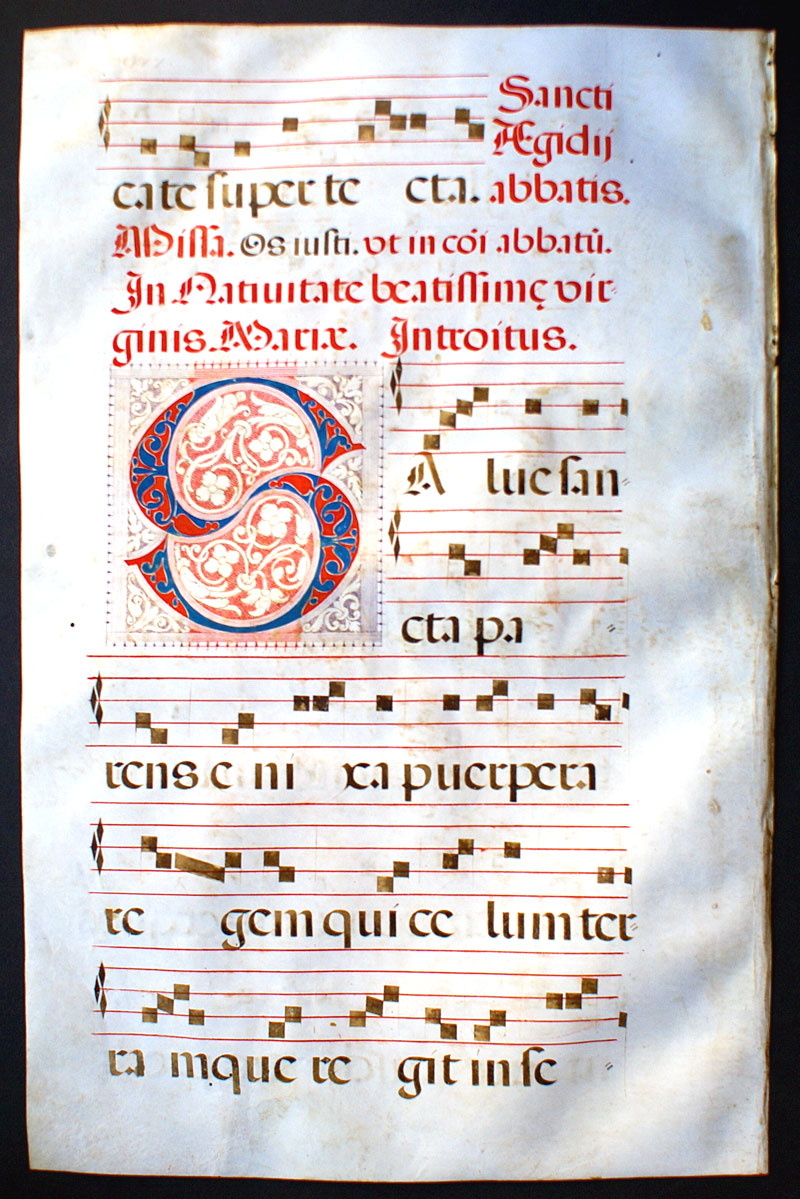 Sancti
Ægidij
cate super te cta. abbatis.
Missa. Os iusti. vt in cōi abbatū.
In Natiuitate beatissimę vir-
ginis Mariæ. Introitus.
SA lue san
cta pa
rens e ni xa puerpera
re gem qui ce lum ter
ra mque re git in se